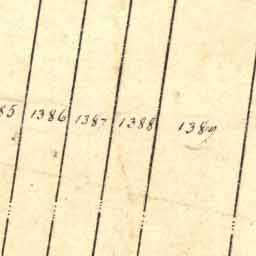 85 1386 1387 1388 1389